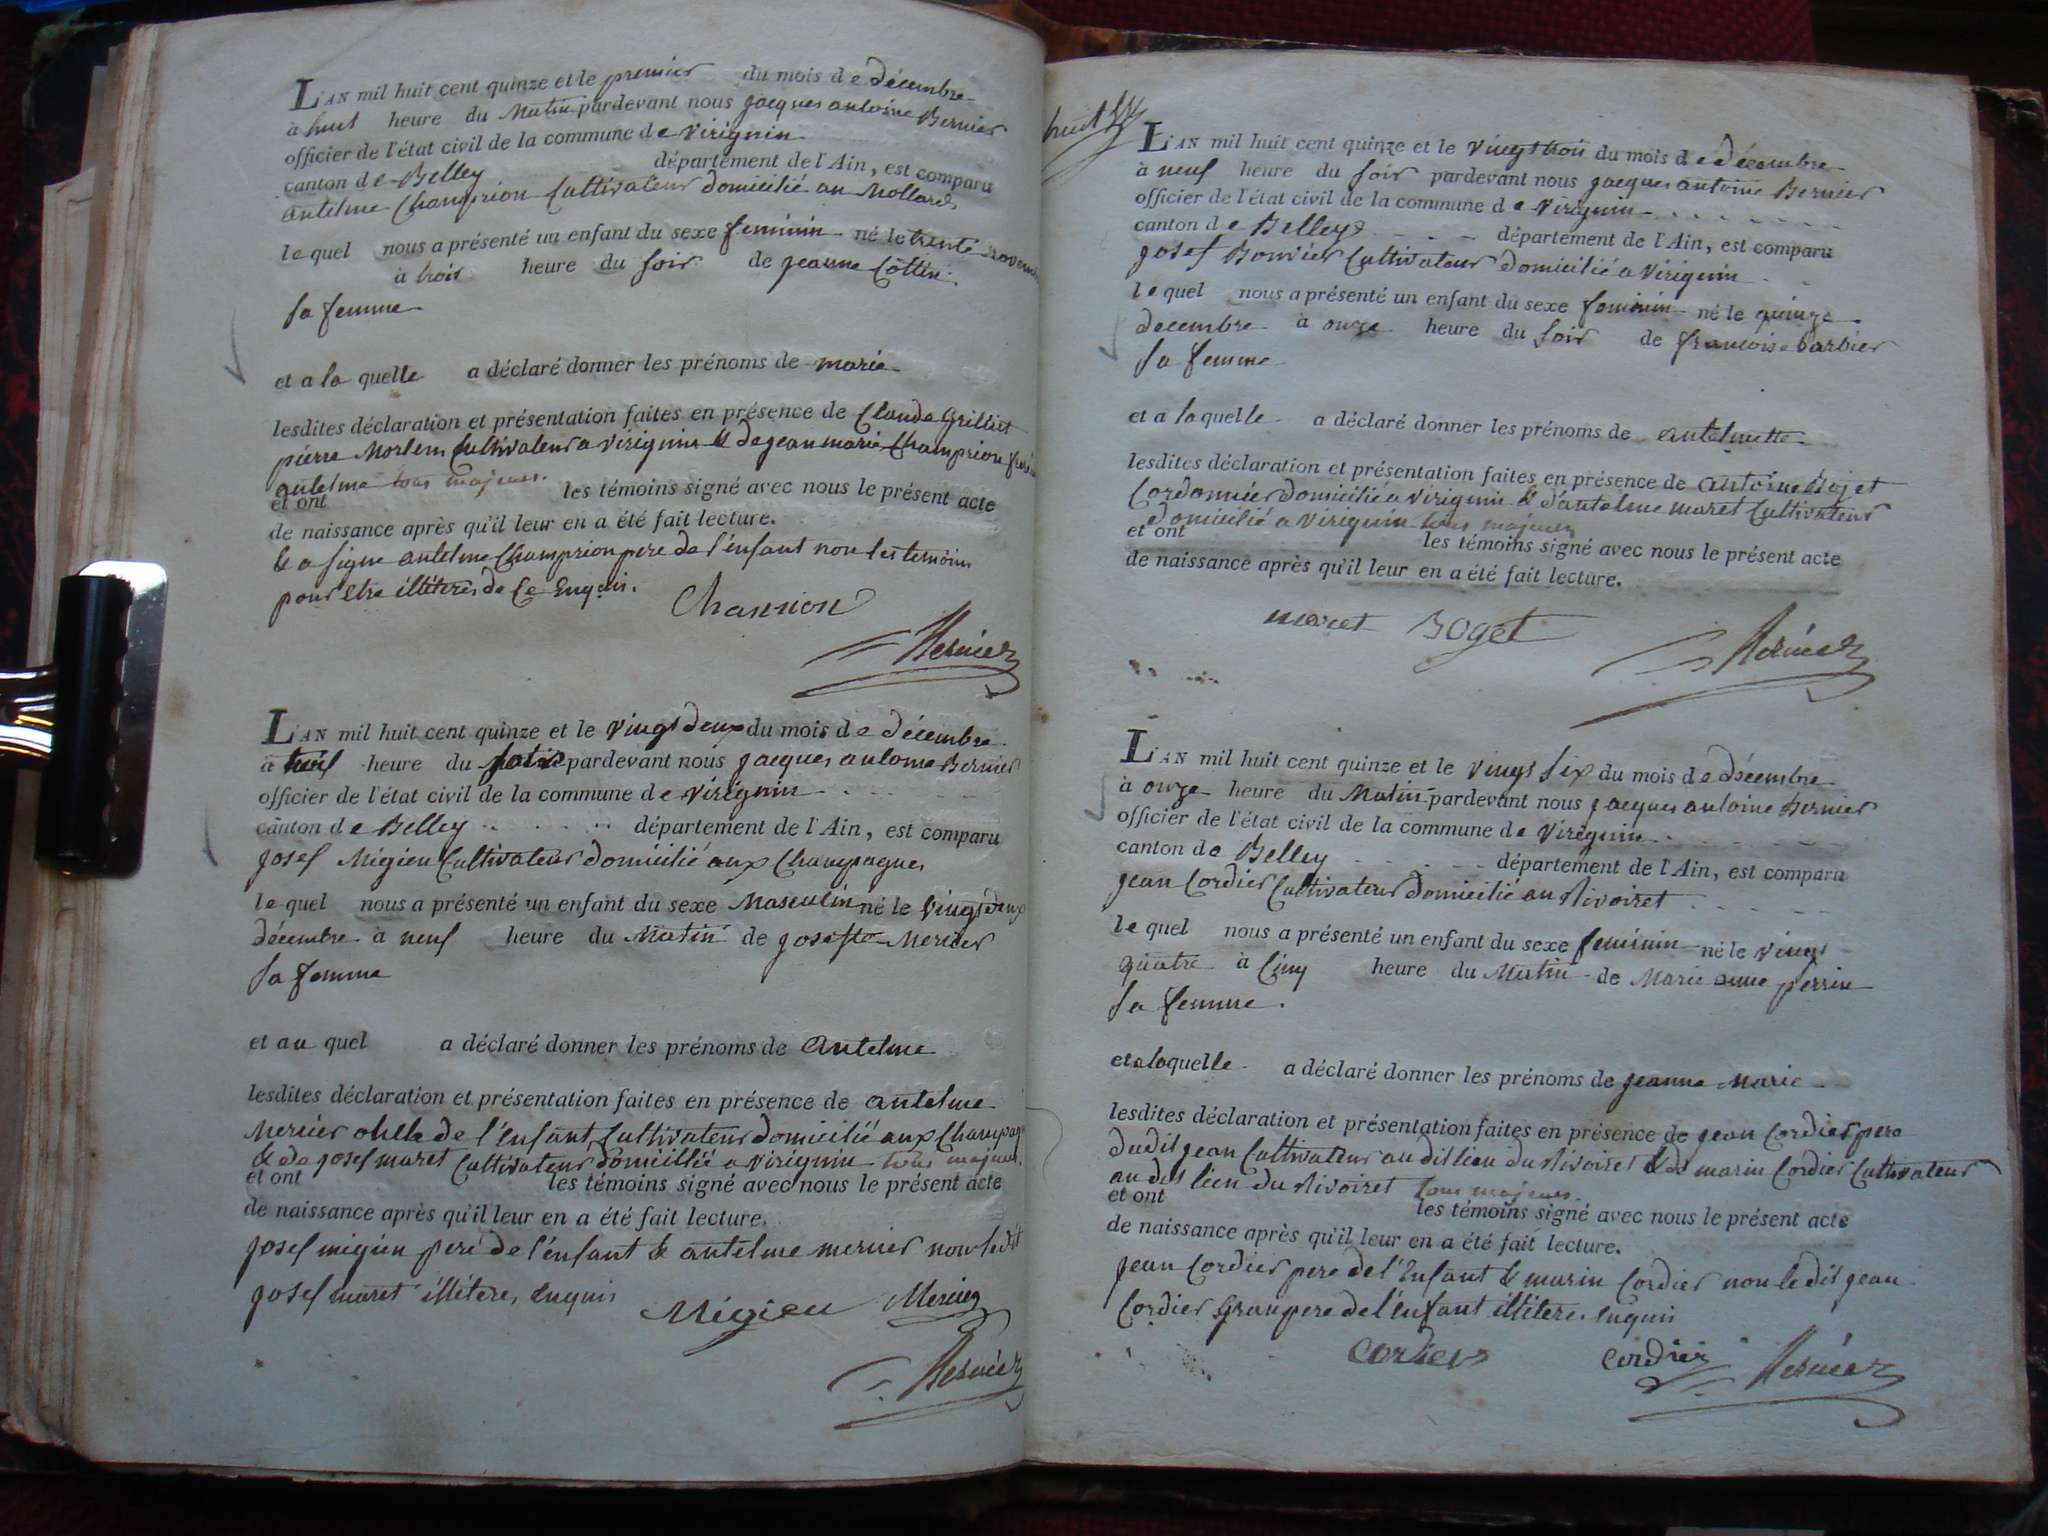 L'AN mil huit cent quinze et le premier du mois de décembre
à huit heure du Matin pardevant nous jacques antoine Bernier
officier de l'état civil de la commune de virignin
canton de Belley département de l'Ain, est comparu
antelme Champrion Cultivateur domicilié au Mollard
le quel nous a présenté un enfant du sexe feminin né le trente novembre
à trois heure du soir de jeanne Cottin
sa femme
et a la quelle a déclaré donner les prénoms de marie
lesdites déclaration et présentation faites en présence de Claude Grilliet
pierre Cultivateur a virignin & de jean marie Champrion
antelme tous majeurs.
et ont les témoins signé avec nous le présent acte
de naissance après qu'il leur en a été fait lecture.
& a signe antelme Champrion pere de l'enfant non les temoins
pour etre illiteres de ce Enquis.
Bernier
L'AN mil huit cent quinze et le vingt deux du mois de décembre
à heure du pardevant nous jacques antoine Bernier
officier de l'état civil de la commune de virignin
canton de Belley département de l'Ain, est comparu
josef Mégieu Cultivateur domicilié aux Champagnes
le quel nous a présenté un enfant du sexe Masculin né le vingt deux
décembre à neuf heure du Matin de josefte Mernier
sa femme
et au quel a déclaré donner les prénoms de antelme
lesdites déclaration et présentation faites en présence de antelme
Mernier de l'enfant Cultivateur domicilié aux Champag
& de josef maret Cultivateur domicillié a virignin tous majeurs.
et ont les témoins signé avec nous le présent acte
de naissance après qu'il leur en a été fait lecture.
josef migieu pere de l'enfant & antelme mernier non ledit
josef maret illitere, enquis
Mégieu Mernier
Bernier
L'AN mil huit cent quinze et le vingt trois du mois de décembre
à neuf heure du soir pardevant nous jacques antoine Bernier
officier de l'état civil de la commune de virignin
canton de Belley département de l'Ain, est comparu
josef Bonvier Cultivateur domicilié a virignin
le quel nous a présenté un enfant du sexe feminin né le quinze
decembre à onze heure du soir de francoise barbier
sa femme
et a laquelle a déclaré donner les prénoms de antelmette
lesdites déclaration et présentation faites en présence de antoine Bojet
Cordonnier domicilié a virignin & d'antelme maret Cultivateur
domicilié a virignin tous majeurs
et ont les témoins signé avec nous le présent acte
de naissance après qu'il leur en a été fait lecture.
maret Boget
Bernier
L'AN mil huit cent quinze et le vingt six du mois de décembre
à onze heure du Matin pardevant nous jacques antoine Bernier
officier de l'état civil de la commune de virignin
canton de Belley département de l'Ain, est comparu
jean Cordier Cultivateur domicilié au Rivoiret
le quel nous a présenté un enfant du sexe feminin né le vingt
quatre à Cinq heure du Matin de Marie anne perrin
sa femme.
et a laquelle a déclaré donner les prénoms de jeanne Marie
lesdites déclaration et présentation faites en présence de jean Cordier pere
dudit jean Cultivateur au dit lieu du Rivoiret & de marin Cordier Cultivateur
au dit lieu du Rivoiret tous majeurs.
et ont les témoins signé avec nous le présent acte
de naissance après qu'il leur en a été fait lecture.
jean Cordier pere de l'Enfant & marin Cordier non le dit jean
Cordier Granpere de l'enfant illitere. enquis
Cordier Cordier Bernier